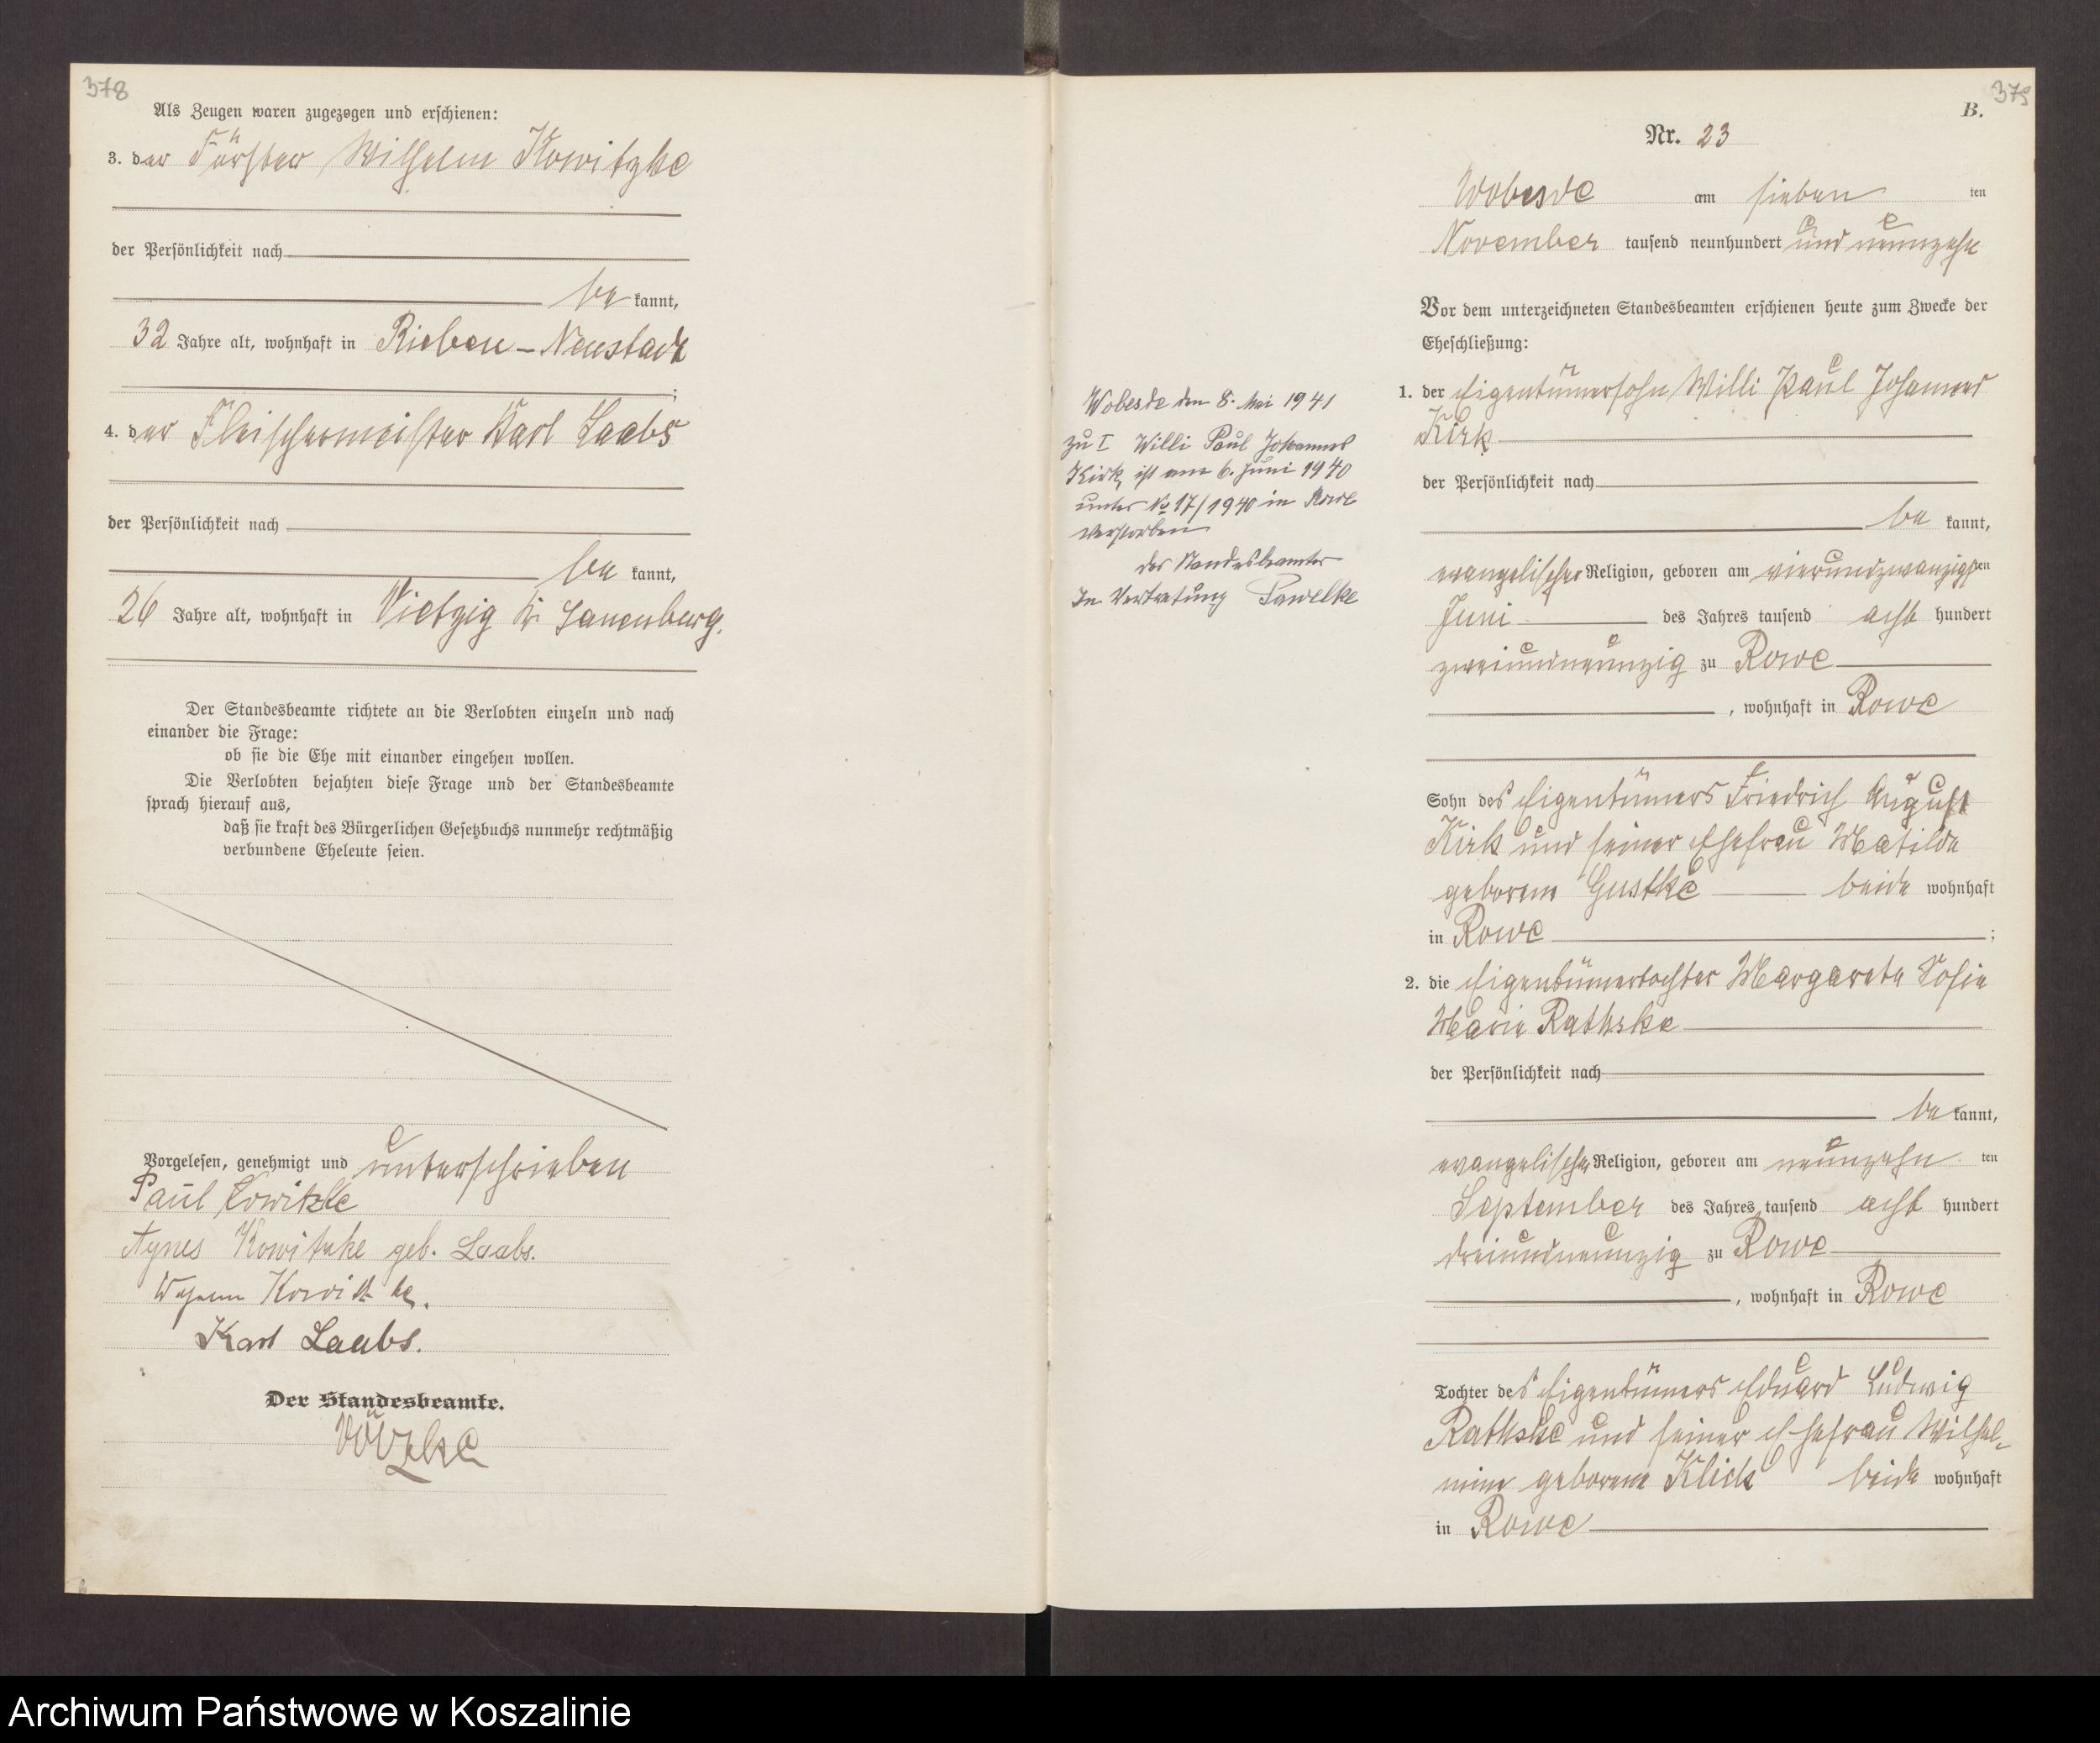 378
Als Zeugen waren zugezogen und erschienen:
3. der Förster Wilhelm Kowitzke
der Persönlichkeit nach
be kannt,
32 Jahre alt, wohnhaft in Rieben-Neustadt
;
4. der Fleischermeister Karl Laabs
der Persönlichkeit nach
be kannt,
26 Jahre alt, wohnhaft in Vietzig Kr. Lauenburg.
Der Standesbeamte richtete an die Verlobten einzeln und nach
einander die Frage:
ob sie die Ehe mit einander eingehen wollen.
Die Verlobten bejahten diese Frage und der Standesbeamte
sprach hierauf aus,
daß sie kraft des Bürgerlichen Gesetzbuchs nunmehr rechtmäßig
verbundene Eheleute seien.
Vorgelesen, genehmigt und unterschrieben
Paul Kowitzke
Agnes Kowitzke geb. Laabs.
Kowitzke.
Karl Laabs.
Der Standesbeamte.
379
B.
Nr. 23
Wobesde am sieben ten
November tausend neunhundert und neunzehn
Vor dem unterzeichneten Standesbeamten erschienen heute zum Zwecke der
Eheschließung:
1. der Eigentümersohn Willi Paul Johannes
Kirk
der Persönlichkeit nach
be kannt,
evangelischer Religion, geboren am vierundzwanzigsten
Juni des Jahres tausend acht hundert
zweiundneunzig zu Rowe
, wohnhaft in Rowe
Sohn des Eigentümers Friedrich August
Kirk und seiner Ehefrau Matilde
geborene Gustke beide wohnhaft
in Rowe ;
2. die Eigentümertochter Margarete Sofie
Marie Rathske
der Persönlichkeit nach
be kannt,
evangelischer Religion, geboren am neunzehn ten
September des Jahres tausend acht hundert
dreiundneunzig zu Rowe
, wohnhaft in Rowe
Tochter des Eigentümers Eduard Ludwig
Rathske und seiner Ehefrau Wilhel-
mine geborene Klick beide wohnhaft
in Rowe
Wobesde den 8. Mai 1941
zu I Willi Paul Johannes
Kirk, ist am 6. Juni 1940
unter No 17/1940 in Rowe
verstorben
der Standesbeamte
In Vertretung Pawelke
Archiwum Państwowe w Koszalinie